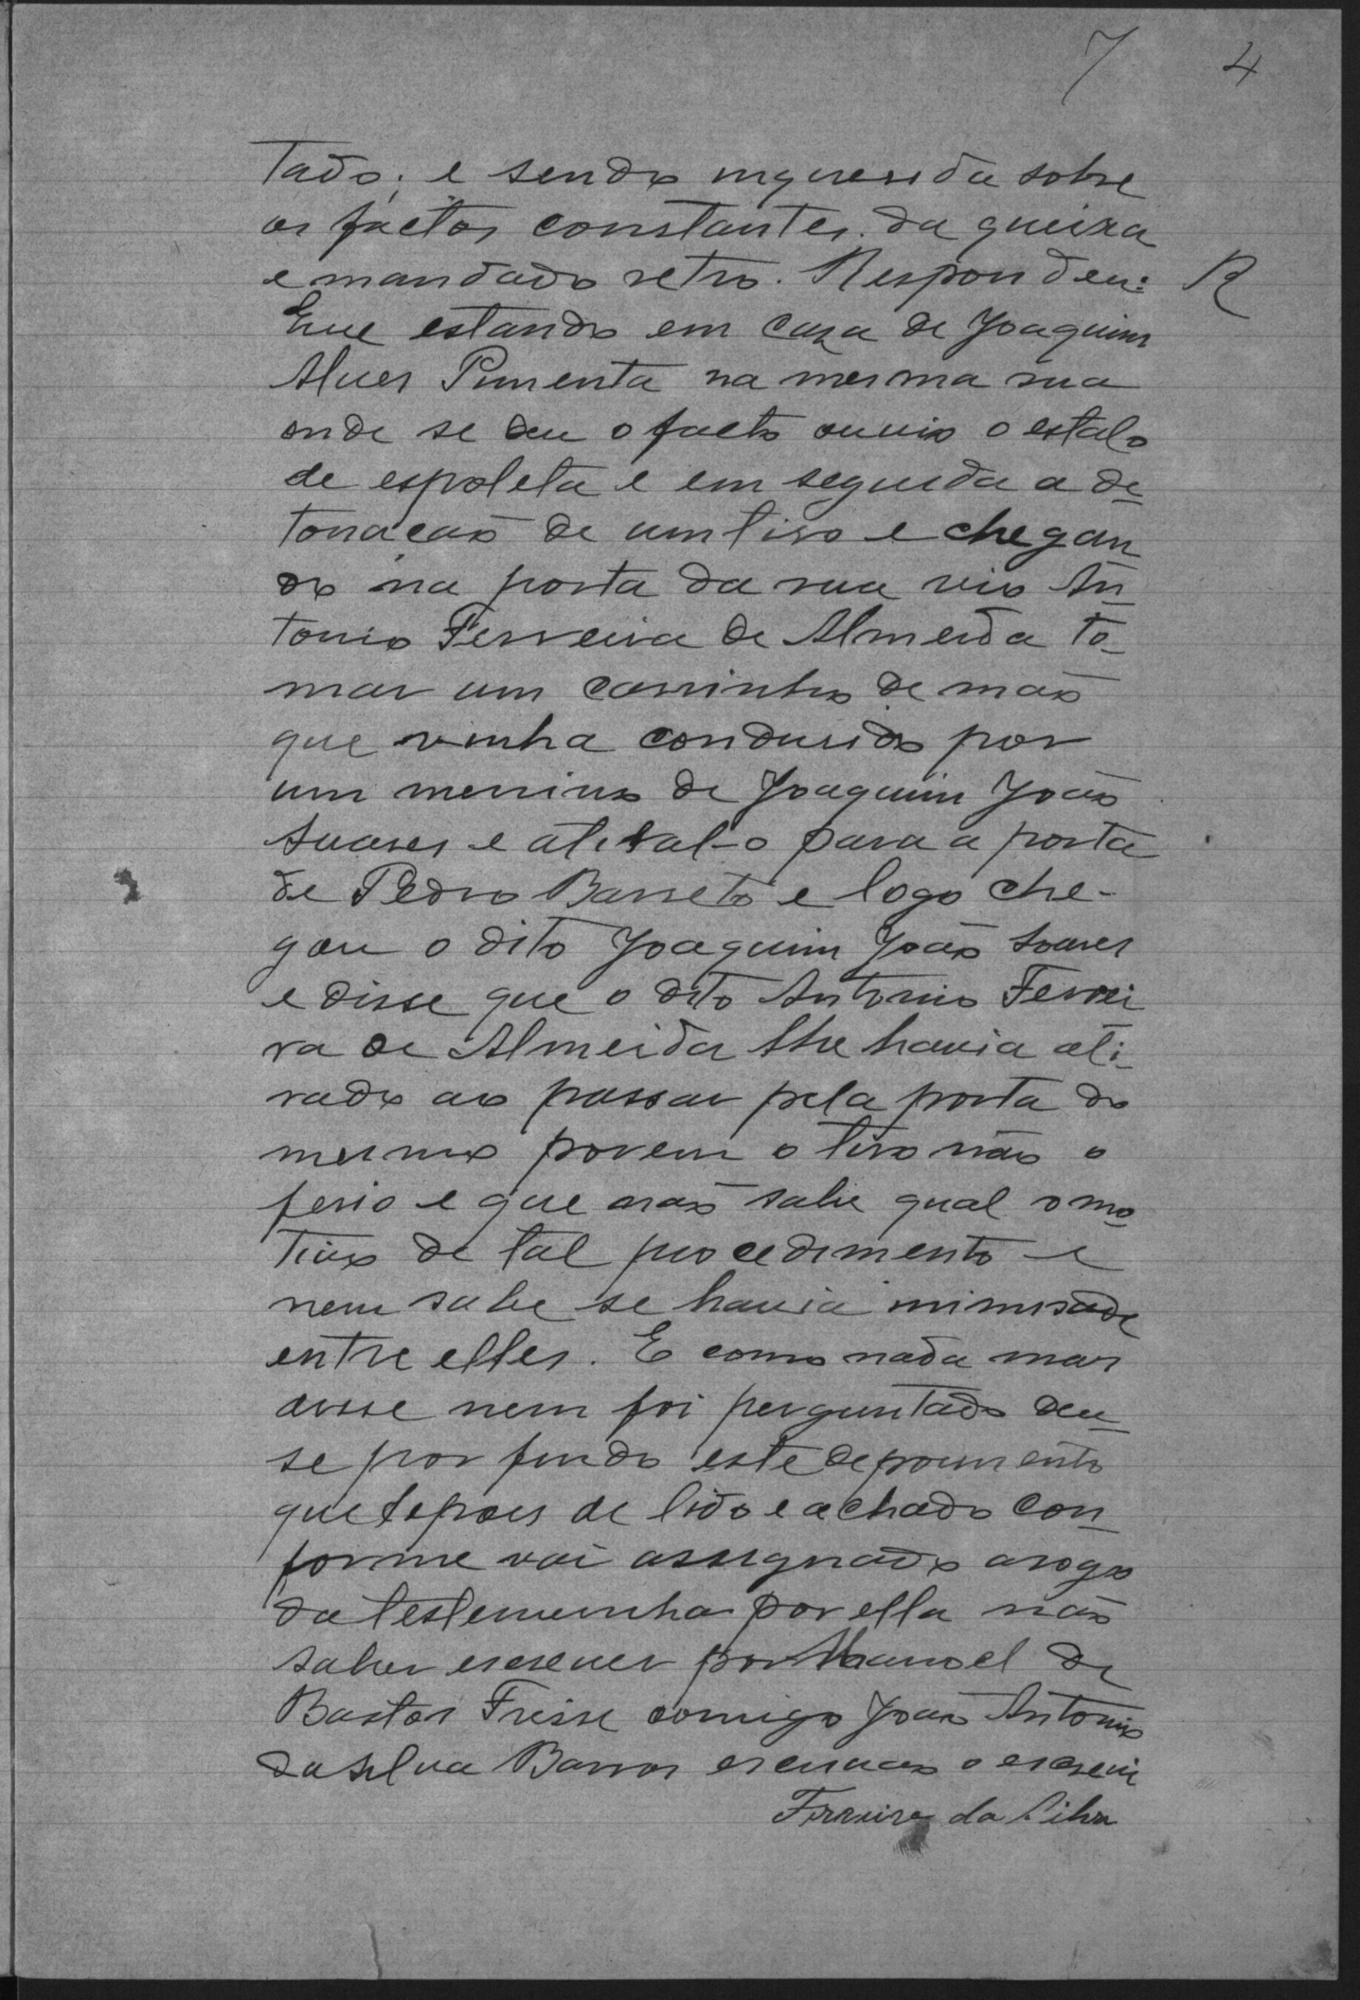 7 4
tado; e sendo inqueresida sobre
os factos constantes da queixa
e mandado retro. Respondeu: R
Que estando em caza de Joaquim
Alves Pimenta na mesma rua
onde se deu o facto ouvio o estalo
de espoleta e em seguida a de_
tonação de um tiro e chegan_
do na porta da rua vio An_
tonio Ferreira de Almeida to_
mar um carrinho de mão
que vinha condusido por
um menino de Joaquim João
Suares e atiral-o para a porta
de Pedro Barreto e logo che-
gou o dito Joaquim João Soares
e disse que o dito Antonio Ferrei
ra de Almeida lhe havia ati_
rado ao passar pela porta do
mesmo porem o tiro não o
ferio e que não sabe qual o mo_
tivo de tal procedimento e
nem sabe se havia inimisade
entre elles. E como nada mais
disse nem foi perguntado deu_
se por findo este depoimento
que depois de lido e achado con_
forme vai assignado a rogo
da testemunha por ella não
saber escrever por Manoel de
Bastos Freire comigo João Antonio
da Silva Barros escrivão o escrevi
Ferreira da Silva